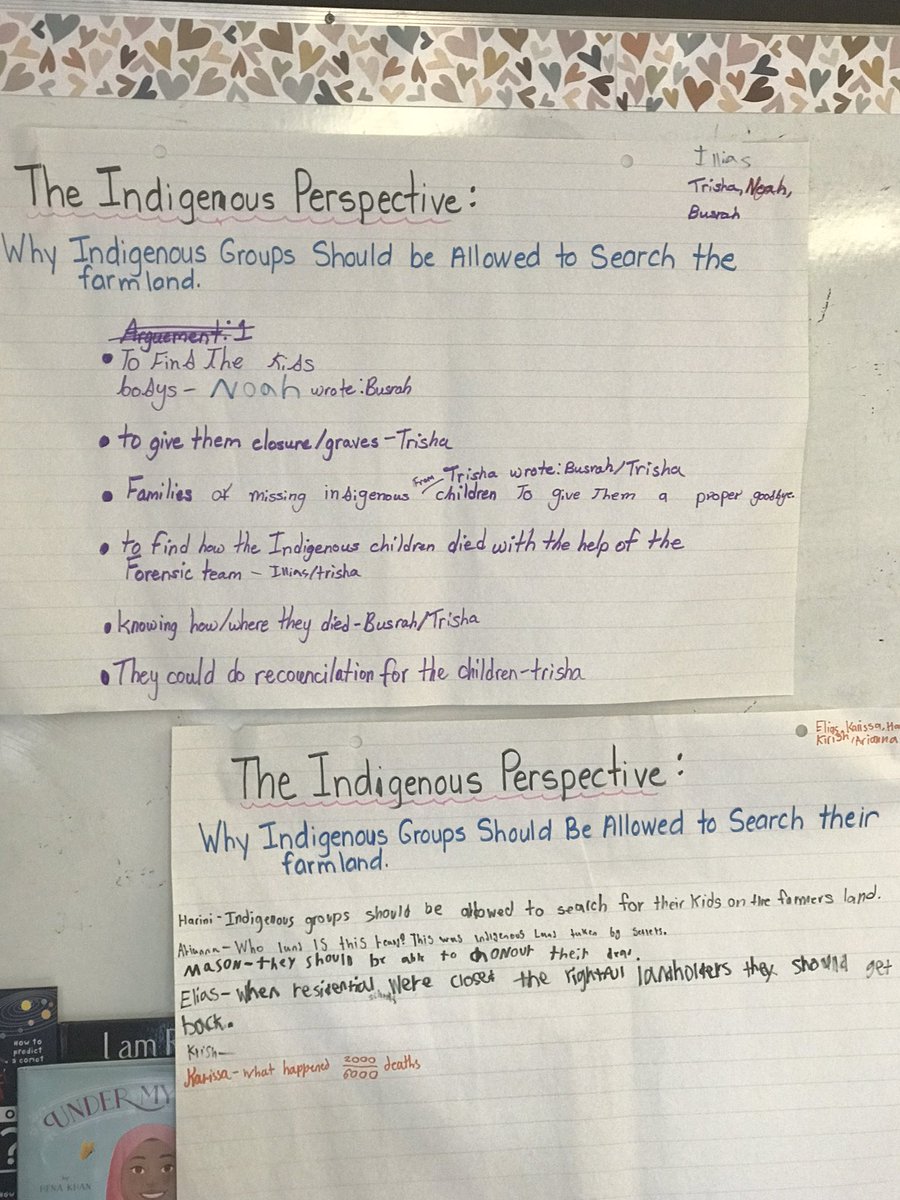 Illias
Trisha, Noah,
Busrah
The Indigenous Perspective:
Why Indigenous Groups Should be Allowed to Search the
farmland.
Arguement: 1
• To Find The Kids
bodys - Noah wrote: Busrah
• to give them closure/graves - Trisha
From Trisha wrote: Busrah/Trisha
• Families of missing indigenous children To give Them a proper goodbye.
• to find how the Indigenous children died with the help of the
Forensic team - Illias/trisha
• knowing how/where they died - Busrah/Trisha
• They could do recouncilation for the children - trisha
Elias, Karissa, Ha
Krish, Arianna
The Indigenous Perspective:
Why Indigenous Groups Should Be Allowed to Search their
farmland.
Harini - Indigenous groups should be allowed to search for their kids on the farmers land.
Arianna - Who land IS this This was Indigenous Land taken by
Mason - they should be able to honour their
Elias - when residential school were closed the rightful landholders they should get
back.
Krish -
Karissa - what happened 2000/6000 deaths
How to
predict
a comet
I am
UNDER MY
by
HENA KHAN